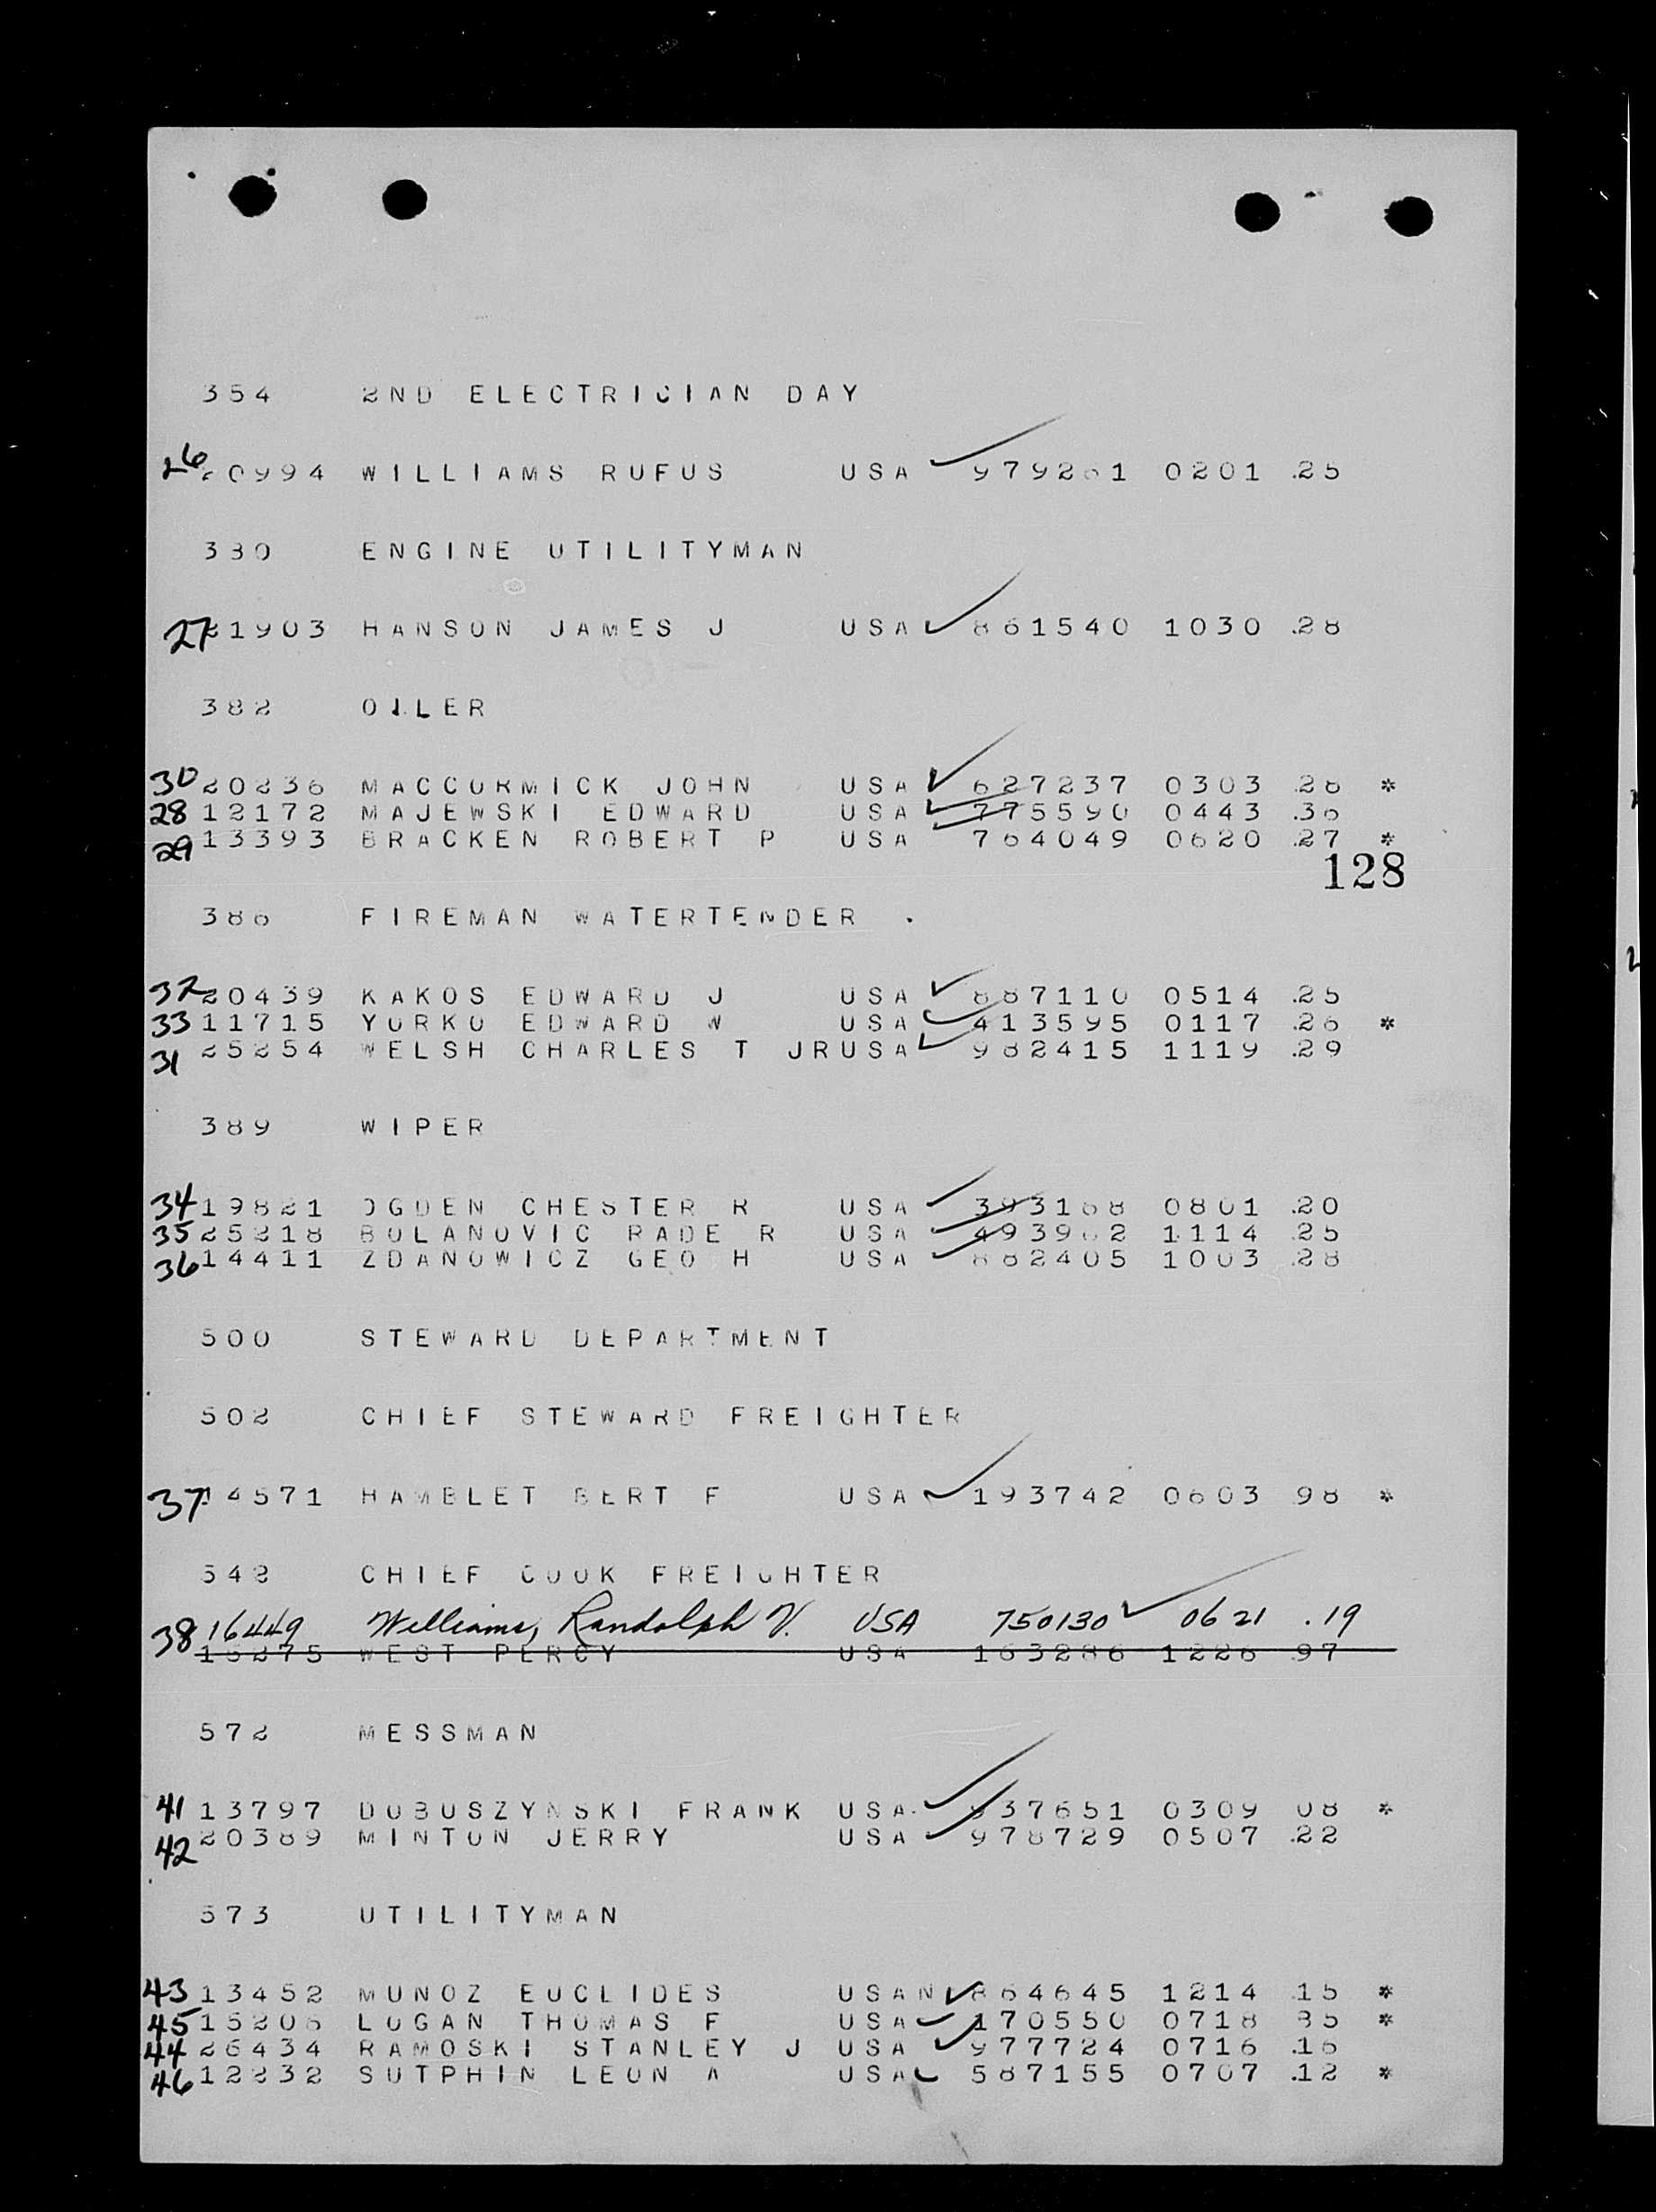 354 2ND ELECTRICIAN DAY
26 20994 WILLIAMS RUFUS USA 979261 0201 .25
380 ENGINE UTILITYMAN
27 21903 HANSON JAMES J USA 861540 1030 .28
382 OILER
30 20236 MACCORMICK JOHN USA 627237 0303 .28 *
28 12172 MAJEWSKI EDWARD USA 775590 0443 .36
29 13393 BRACKEN ROBERT P USA 764049 0620 .27 *
128
386 FIREMAN WATERTENDER
32 20439 KAKOS EDWARD J USA 887110 0514 .25
33 11715 YORKO EDWARD W USA 413595 0117 .26 *
31 25254 WELSH CHARLES T JRUSA 982415 1119 .29
389 WIPER
34 19821 OGDEN CHESTER R USA 393168 0801 .20
35 25218 BOLANOVIC RADE R USA 1114 .25
36 14411 ZDANOWICZ GEO H USA 882405 1003 .28
500 STEWARD DEPARTMENT
502 CHIEF STEWARD FREIGHTER
37 14571 HAMBLET BERT F USA 193742 0603 98 *
542 CHIEF COOK FREIGHTER
38 16449 Williams, Randolph V. USA 750130 0621 .19
15275 WEST PERCY USA 163286 1226 97
572 MESSMAN
41 13797 DOBUSZYNSKI FRANK USA 937651 0309 08 *
42 20389 MINTON JERRY USA 978729 0507 .22
573 UTILITYMAN
43 13452 MUNOZ EUCLIDES USAN 864645 1214 .15 *
45 15206 LOGAN THOMAS F USA 170550 0718 85 *
44 26434 RAMOSKI STANLEY J USA 977724 0716 .16
46 12232 SUTPHIN LEON A USA 587155 0707 .12 *